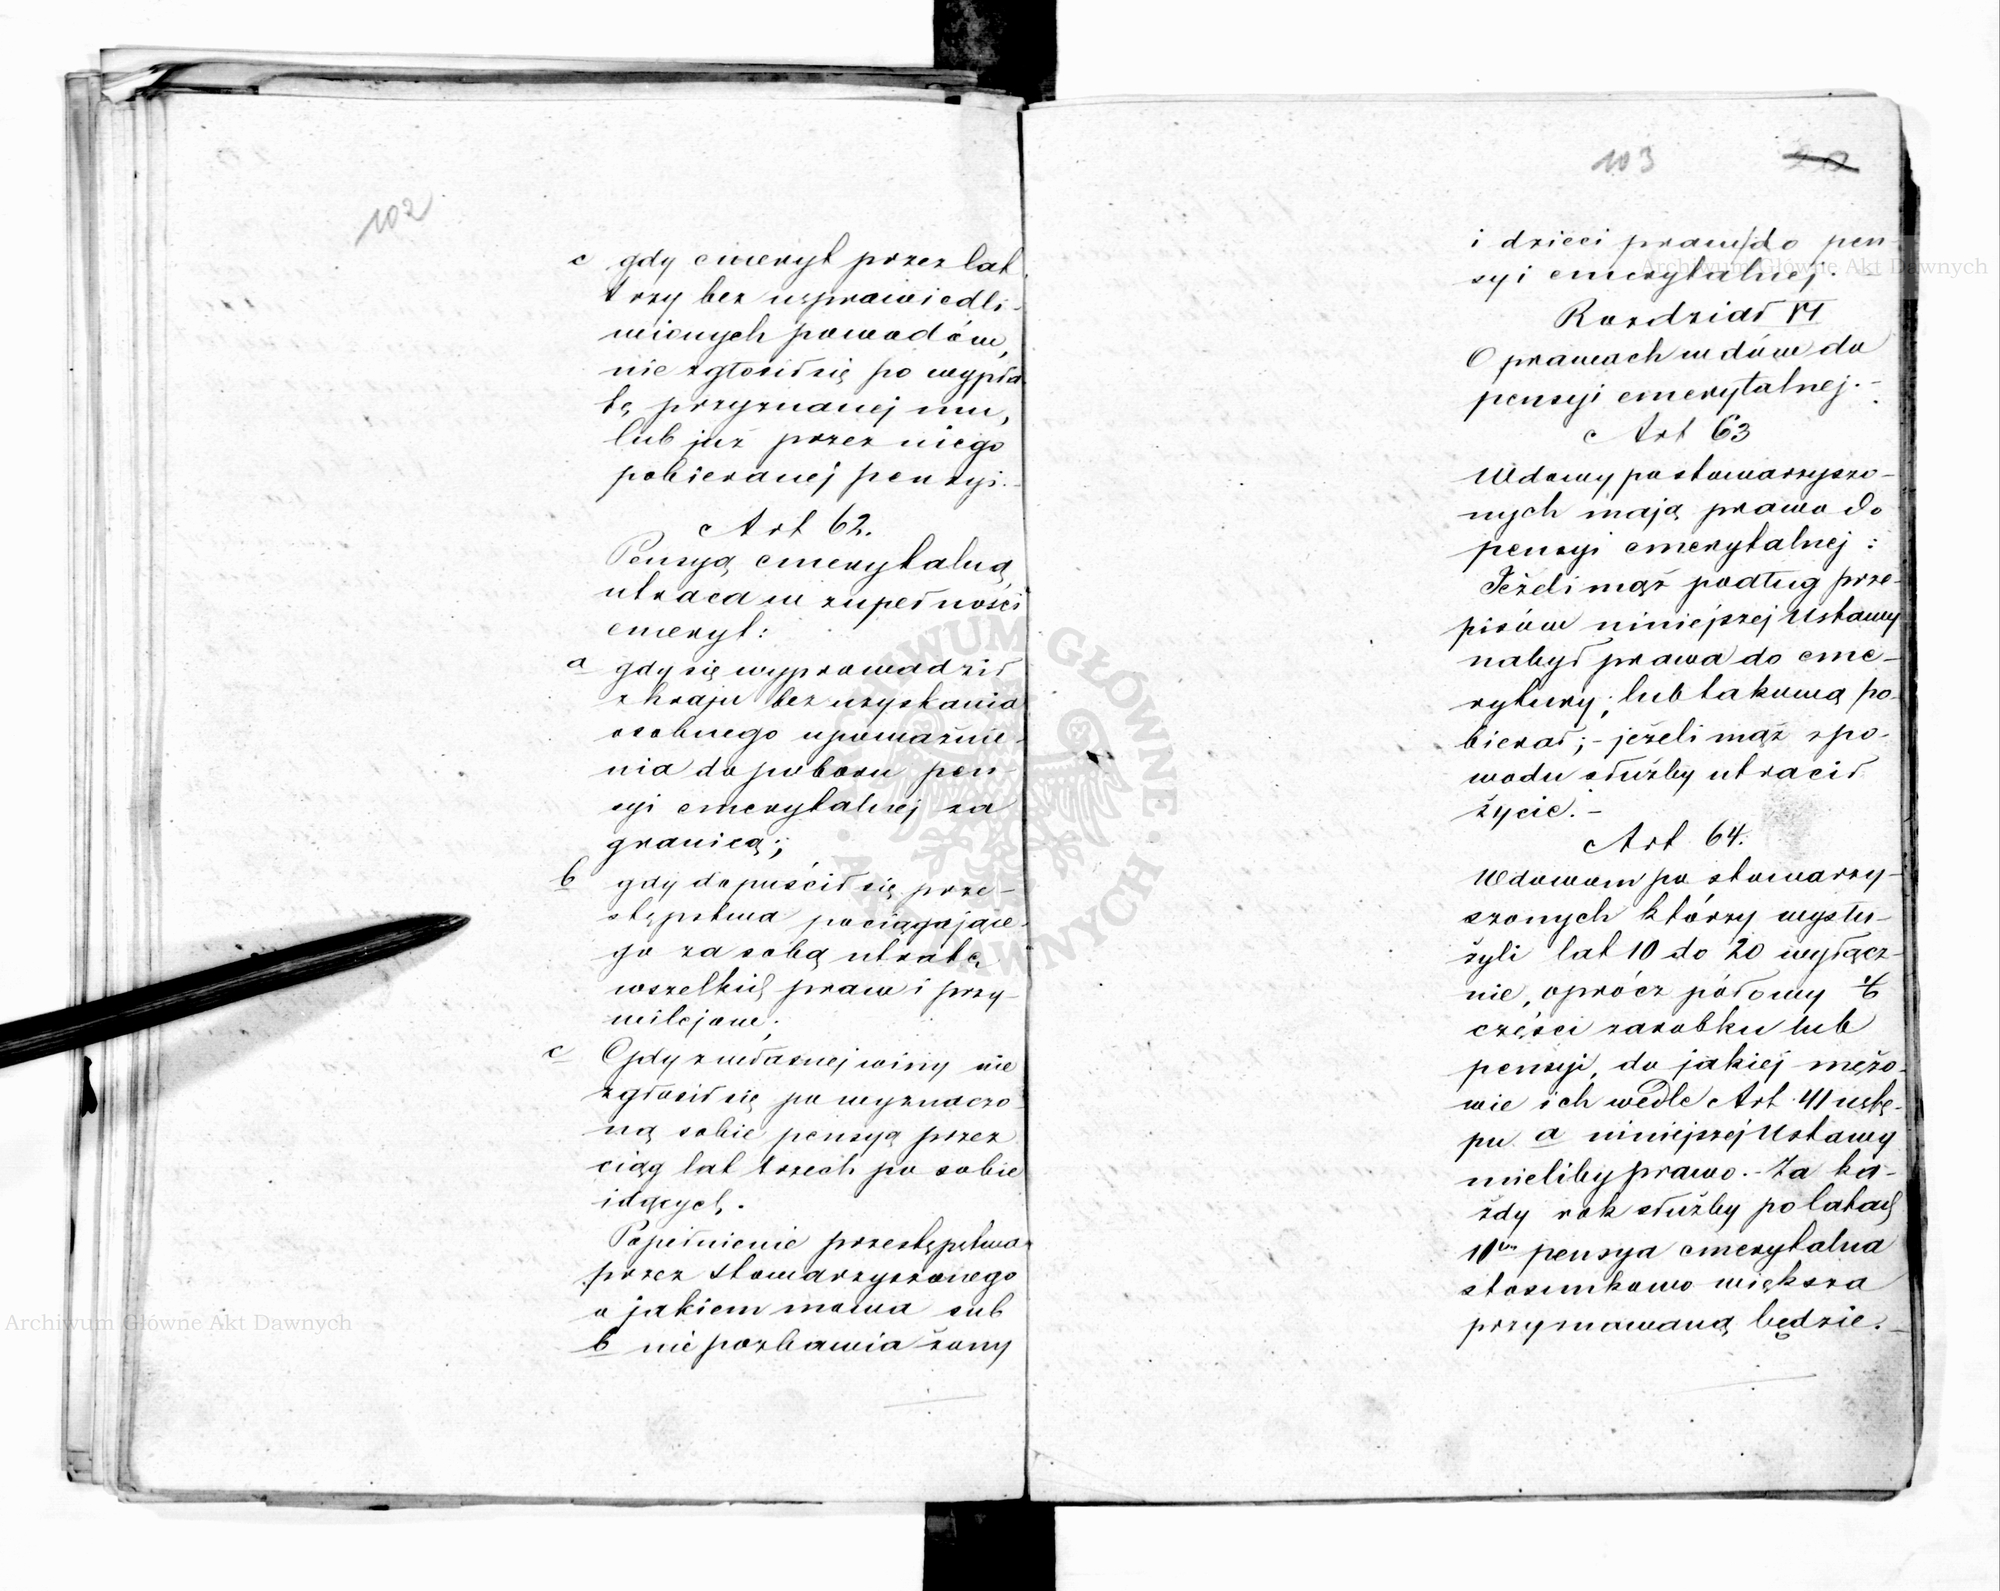 102
c gdy emeryt przez lat
trzy bez usprawiedli-
wionych powodów,
nie zgłosił się po wypła
tę przyznanej mu,
lub już przez niego
pobieranej pensyi.-
Art 62.
Pensyą emerytalną
utraca w zupełności
emeryt:
a gdy się wyprowadził
z kraju bez uzyskania
osobnego upoważnie-
nia do poboru pen-
syi emerytalnej za
granicą;
b gdy dopuścił się prze-
stępstwa pociągające-
go za sobą utratę
wszelkich praw i przy-
wilejów;
c Gdy z własnej winy nie
zgłosił się po wyznaczo-
ną sobie pensyą przez
ciąg lat trzech po sobie
idących.
Popełnienie przestępstwa
przez stowarzyszonego
o jakiem mowa sub
b nie pozbawia żony
103
i dzieci prawa do pen-
syi emerytalnej.-
Rozdział VI
O prawach wdów do
pensyi emerytalnej.-
Art 63
Wdowy po stowarzyszo-
nych mają prawo do
pensyi emerytalnej:
Jeżeli mąż podług prze-
pisów niniejszej Ustawy
nabył prawa do eme-
rytury, lub takową po-
bierał;- jeżeli mąż spo-
wodu służby utracił
życie.-
Art 64.
Wdowom po stowarzy-
szonych którzy wysłu-
żyli lat 10 do 20 wyłącz-
nie, oprócz połowy 1/6
części zarobku lub
pensyi, do jakiej mężo-
wie ich wedle Art. 41 ustę-
pu a niniejszej Ustawy
mieliby prawo.- Za ka-
żdy rok służby po latach
10ciu pensya emerytalna
stosunkowo większa
przyznawaną będzie.-
Archiwum Główne Akt Dawnych
Archiwum Główne Akt Dawnych
ARCHIWUM GŁÓWNE AKT DAWNYCH